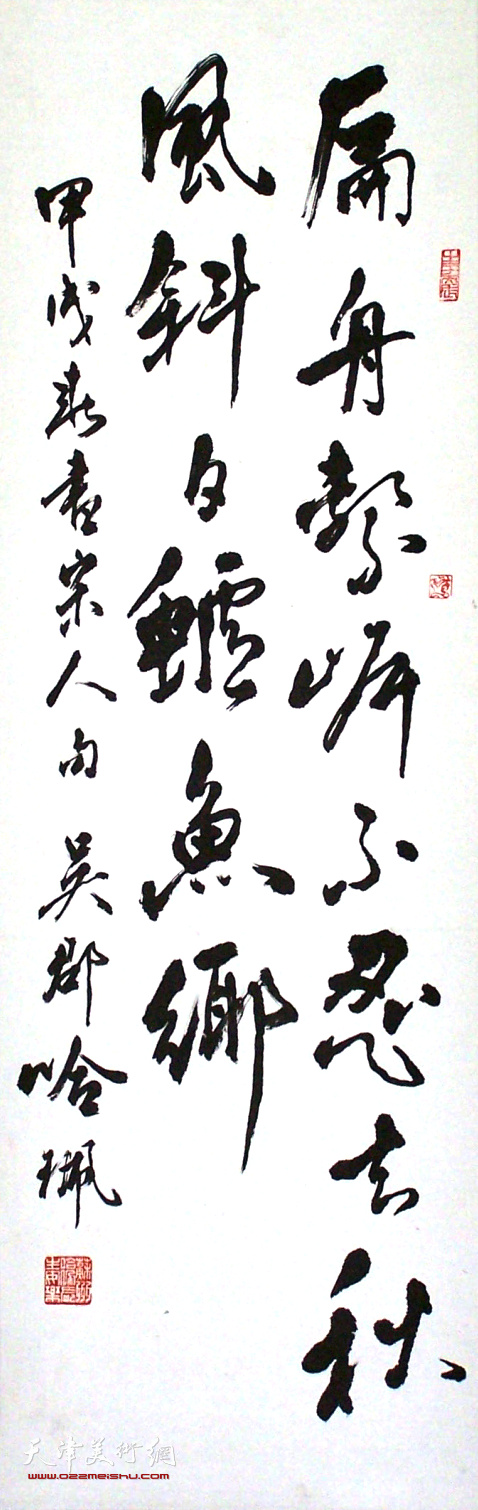 扁舟繫岸不忍去秋
風斜日鱸魚鄉
甲戌春書宋人句 吳郡哈珮
天津美術網
www.022meishu.com